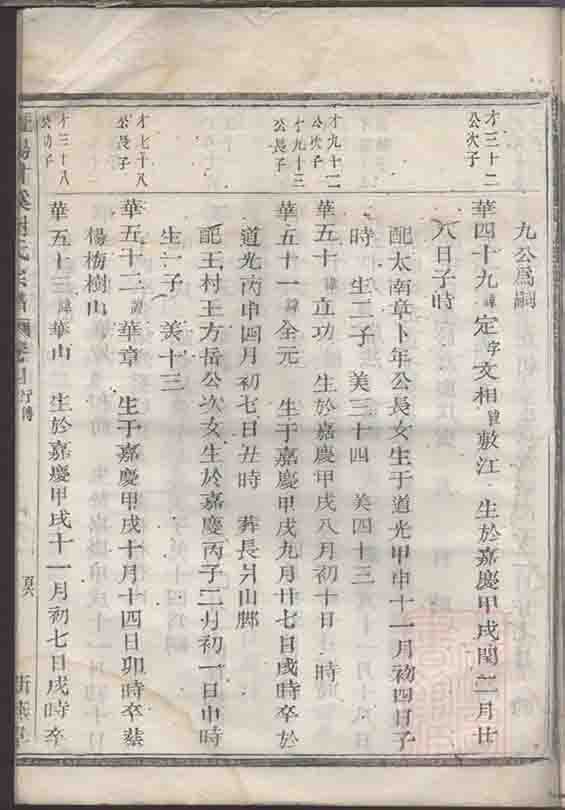 九公爲嗣
才三十二
公次子
華四十九諱定字文相號敷江 生於嘉慶甲戌閏二月廿
八日子時
配太南章卜年公長女生于道光甲申十一月初四日子
時 生二子 美三十四 美四十三
才九十二
公次子
華五十諱立功 生於嘉慶甲戌八月初十日 時
才九十三
公長子
華五十一諱全元 生于嘉慶甲戌九月廿七日戌時卒於
道光丙申四月初七日丑時 葬長爿山脚
配王村王方岳公次女生於嘉慶丙子二月初一日申時
生一子 美十三
才七十八
公長子
華五十二諱華章 生于嘉慶甲戌十月十四日卯時卒葬
楊梅樹山
才三十八
公幼子
華五十三諱華山 生於嘉慶甲戌十一月初七日戌時卒
氏宗譜
行傳
百六